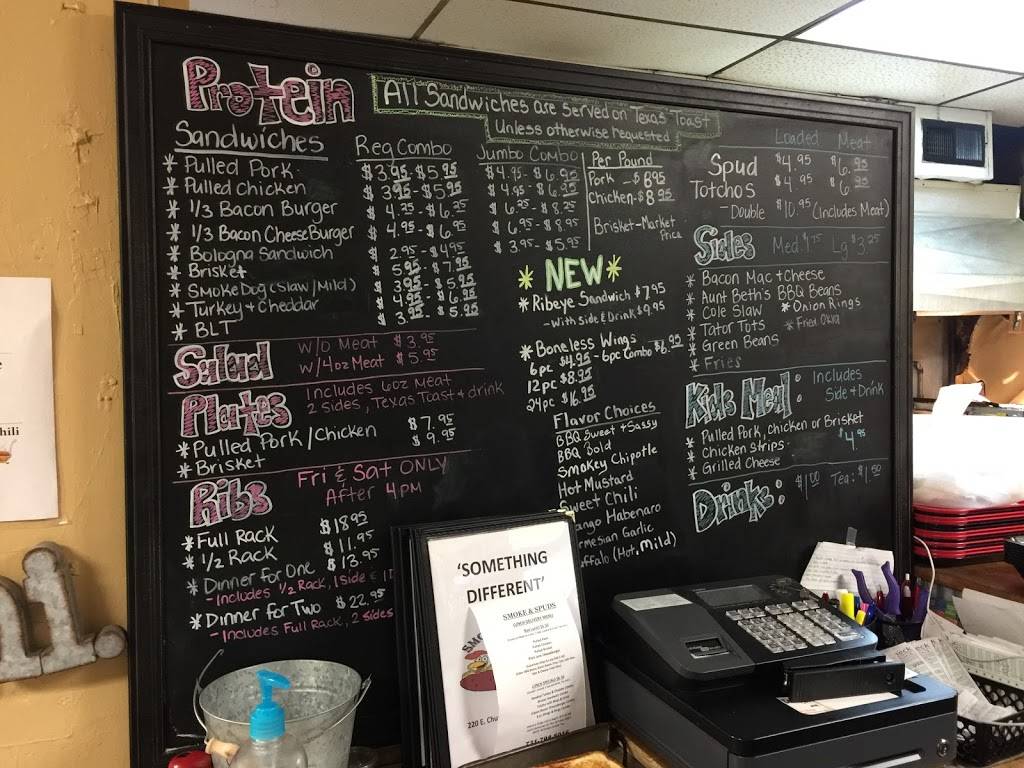 Protein
All Sandwiches are served on Texas Toast
Unless otherwise requested
Sandwiches Reg Combo Jumbo Combo
* Pulled Pork $3.95-$5.95 $4.95-$6.95
* Pulled chicken $3.95-$5.95 $4.95-$6.95
* 1/3 Bacon Burger $4.25-$6.25 $6.25-$8.25
* 1/3 Bacon Cheese Burger $4.95-$6.95 $6.95-$8.95
* Bologna Sandwich $2.95-$4.95 $3.95-$5.95
* Brisket $5.95-$7.95
* Smoke Dog (Slaw/Mild) $3.95-$5.95
* Turkey & Cheddar $4.95-$6.95
* BLT $3.95-$5.95
Per Pound
Pork - $8.95
Chicken - $8.95
Brisket-Market
Price
Salad
W/O Meat $3.95
W/4oz Meat $5.95
Plates
Includes 6oz Meat
2 sides, Texas Toast & drink
* Pulled Pork/Chicken $7.95
* Brisket $9.95
Ribs
Fri & Sat ONLY
After 4PM
* Full Rack $18.95
* 1/2 Rack $11.95
* Dinner for One $13.95
- Includes 1/2 Rack, 1 Side &
* Dinner for Two $22.95
- Includes Full Rack, 2 sides
* NEW *
* Ribeye Sandwich $7.95
- With Side & Drink $9.95
* Boneless Wings
6pc $4.95 - 6pc Combo $6.99
12pc $8.95
24pc $16.95
Flavor Choices
BBQ Sweet & Sassy
BBQ Bold
Smokey Chipotle
Hot Mustard
Sweet Chili
ango Habenaro
rmesian Garlic
uffalo (Hot, Mild)
Loaded Meat
Spud $4.95 $6.95
Totchos $4.95 $6.95
- Double $10.95 (Includes Meat)
Sides Med $1.75 Lg $3.25
* Bacon Mac & Cheese
* Aunt Beth's BBQ Beans
* Cole Slaw * Onion Rings
* Tator Tots * Fried Okra
* Green Beans
* Fries
Kids Meal: Includes
Side & Drink
* Pulled Pork, Chicken or Brisket
* Chicken Strips $4.95
* Grilled Cheese
Drink: $1.00 Tea: $1.50
'SOMETHING
DIFFERENT'
SMOKE & SPUDS
220 E. Chu
hili